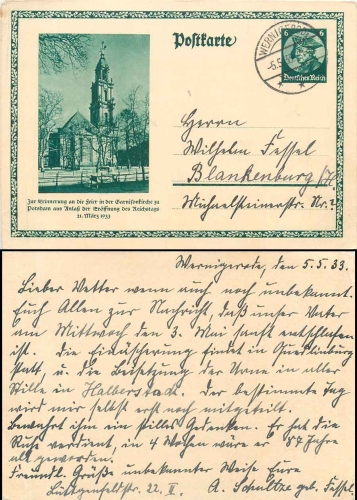 Postkarte
6 6
Deutsches Reich
WERNIGERODE
Zur Erinnerung an die Feier in der Garnisonkirche zu
Potsdam aus Anlaß der Eröffnung des Reichstags
21. März 1933
Herrn
Wilhelm Fessel
Blankenburg /H
Michaelsteinerstr. Nr. ?
Wernigerode, den 5.5.33.
Lieber Vetter wenn auch noch unbekannt.
Euch Allen zur Nachricht, daß unser Vater
am Mittwoch den 3. Mai sanft entschlafen
ist. Die Einäscherung findet in Quedlinburg
statt, u. die Beisetzung der Urne in aller
Stille in Halberstadt. Der bestimmte Tag
wird mir selbst erst noch mitgeteilt.
Bewahrt ihm ein stilles Gedenken. Er hat die
Ruhe verdient, in 4 Wochen wäre er 87 Jahre
alt geworden.
Freundl. Grüße unbekannter Weise Eure
A. Schultze geb. Fessel.
22. II.